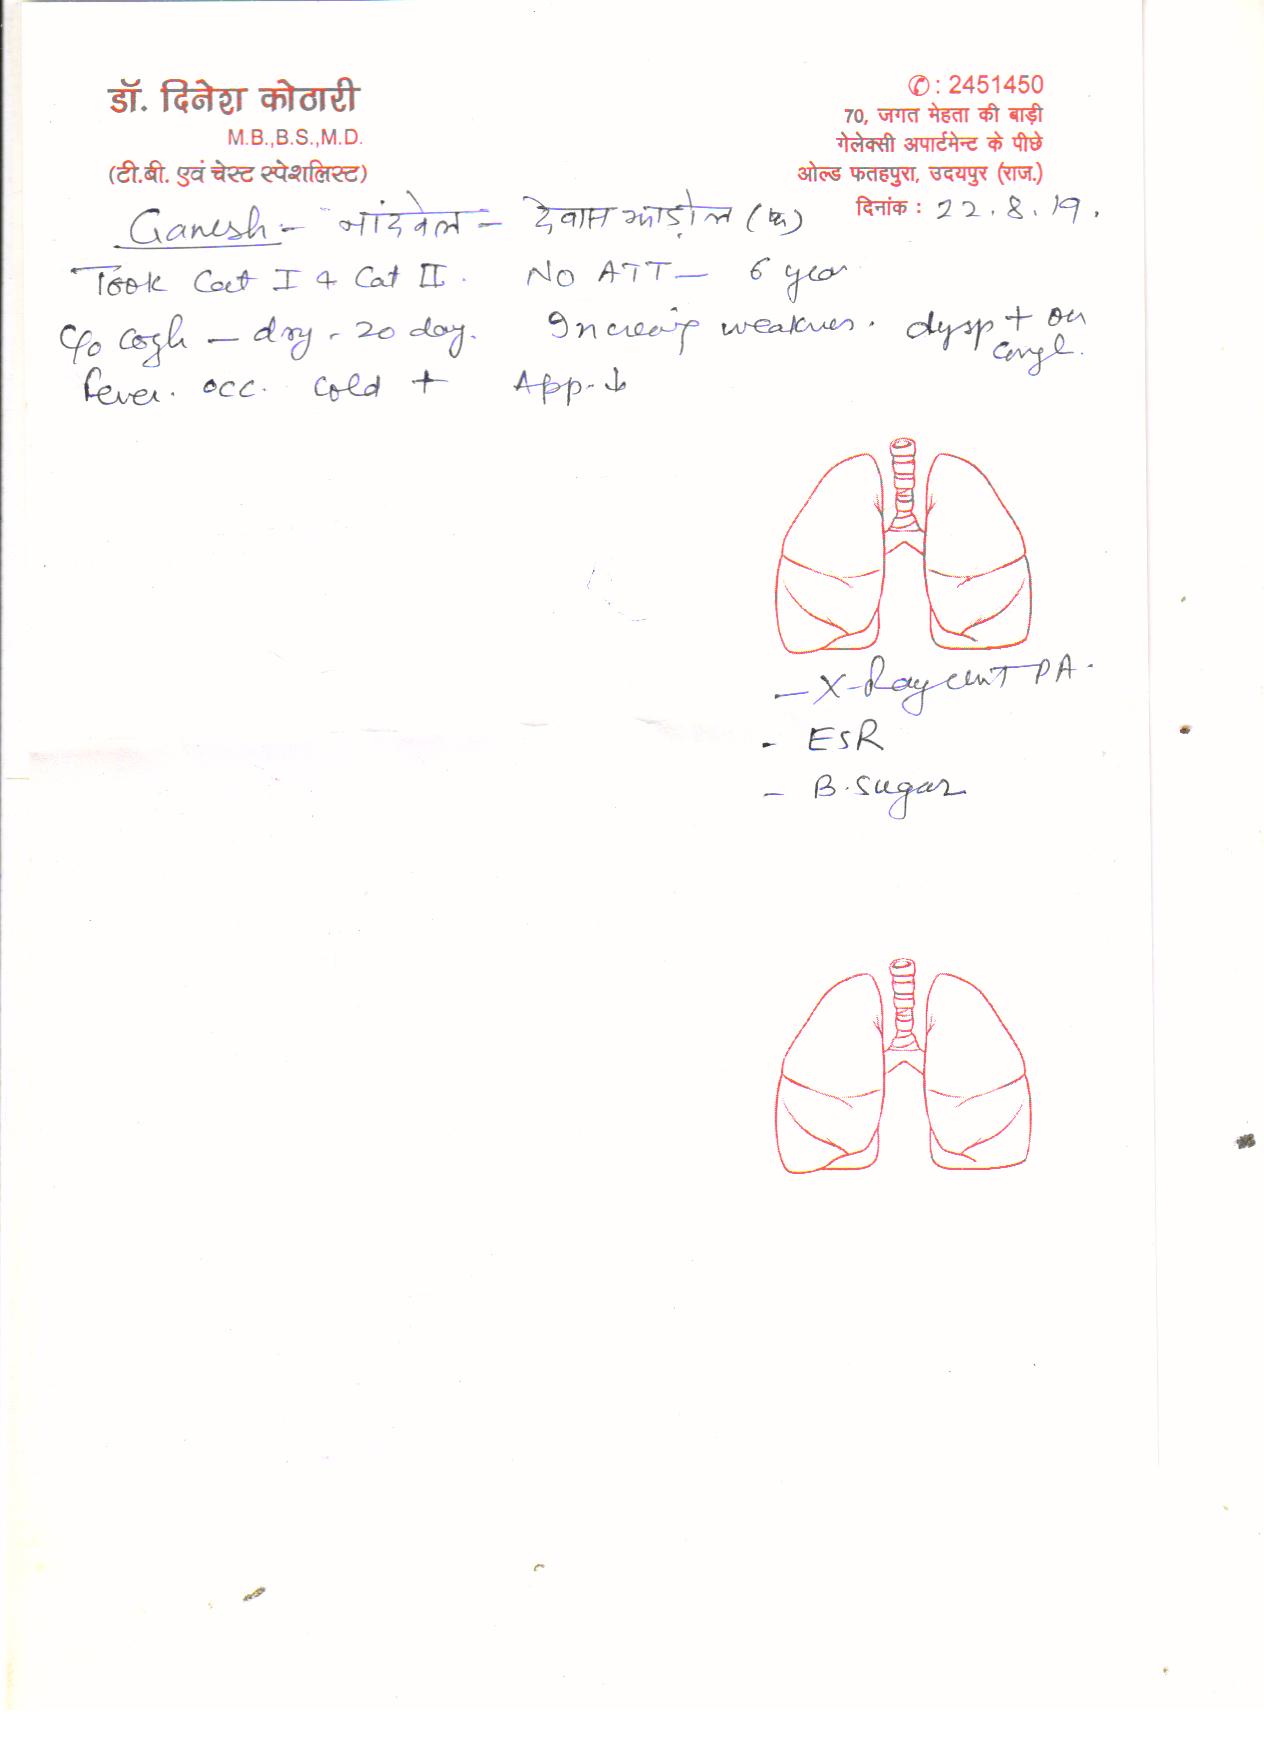 डॉ. दिनेश कोठारी
M.B.,B.S.,M.D.
(टी.बी. एवं चेस्ट स्पेशलिस्ट)
✆ : 2451450
70, जगत मेहता की बाड़ी
गेलेक्सी अपार्टमेन्ट के पीछे
ओल्ड फतहपुरा, उदयपुर (राज.)
दिनांक : 22.8.19.
Ganesh - नांदवेल - देवास झाड़ोल (फ)
Took Cat I & Cat II. NO ATT - 6 year
C/o Cogh - dry - 20 day. weaknes. dysp + on
Fever. occ. Cold + App. ↓
- X-Ray PA.
- ESR
- B. Sugar